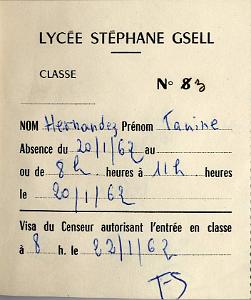 LYCÉE STÉPHANE GSELL
CLASSE
N° 83
NOM Hernandez Prénom Janine
Absence du 20/1/62 au
ou de 8h heures à 11h heures
le 20/1/62
Visa du Censeur autorisant l'entrée en classe
à 8 h. le 22/1/62